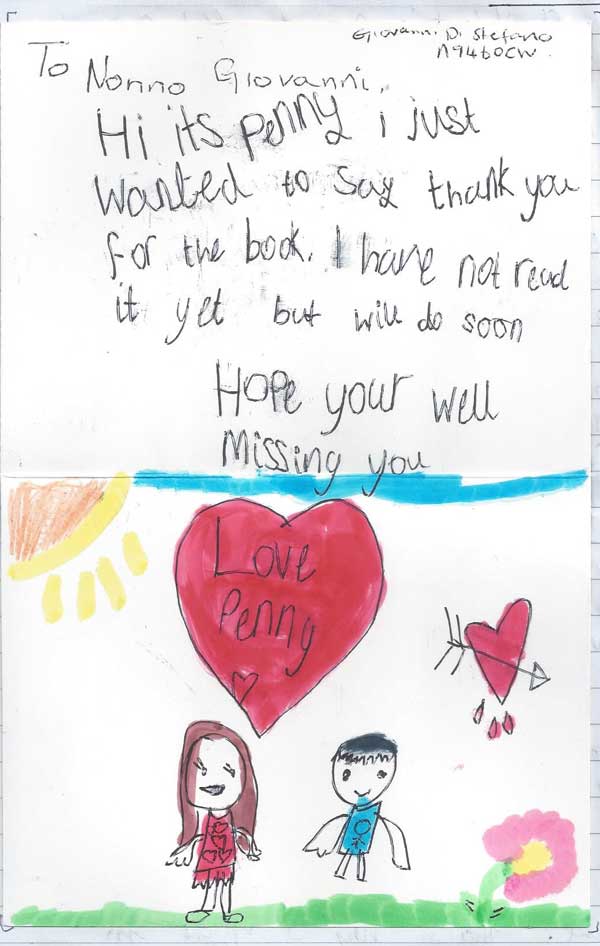 Giovanni Di Stefano
A9460CW.
To Nonno Giovanni,
Hi its penny i just
wanted to say thank you
for the book. I have not read
it yet but will do soon
Hope your well
Missing you
Love
Penny